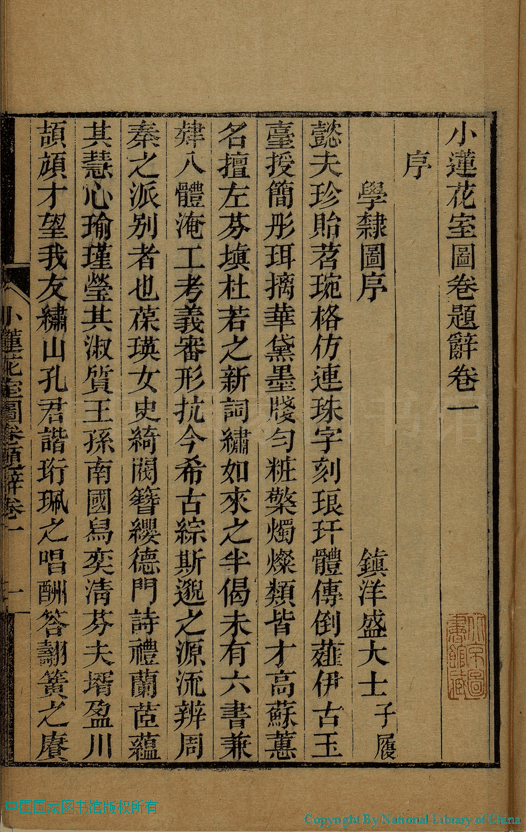 小蓮花室圖卷題辭卷一
序
學隸圖序
鎮洋盛大士子履
懿夫珍貽茗琬格仿連珠字刻琅玕體傳倒薤伊古玉
臺授簡彤珥摛華黛墨牋勻粧檠燭燦類皆才高蘇蕙
名擅左芬塡杜若之新詞繡如來之半偈未有六書兼
肄八體淹工考義審形抗今希古綜斯邈之源流辨周
秦之派别者也葆瑛女史綺閥簪纓德門詩禮蘭茝蘊
其慧心瑜瑾瑩其淑質王孫南國舄奕淸芬夫壻盈川
頡頏才望我友繡山孔君諧珩珮之唱酬答翿簧之賡
小蓮花室圖卷題辭卷一
一
Copyright By National Library of China